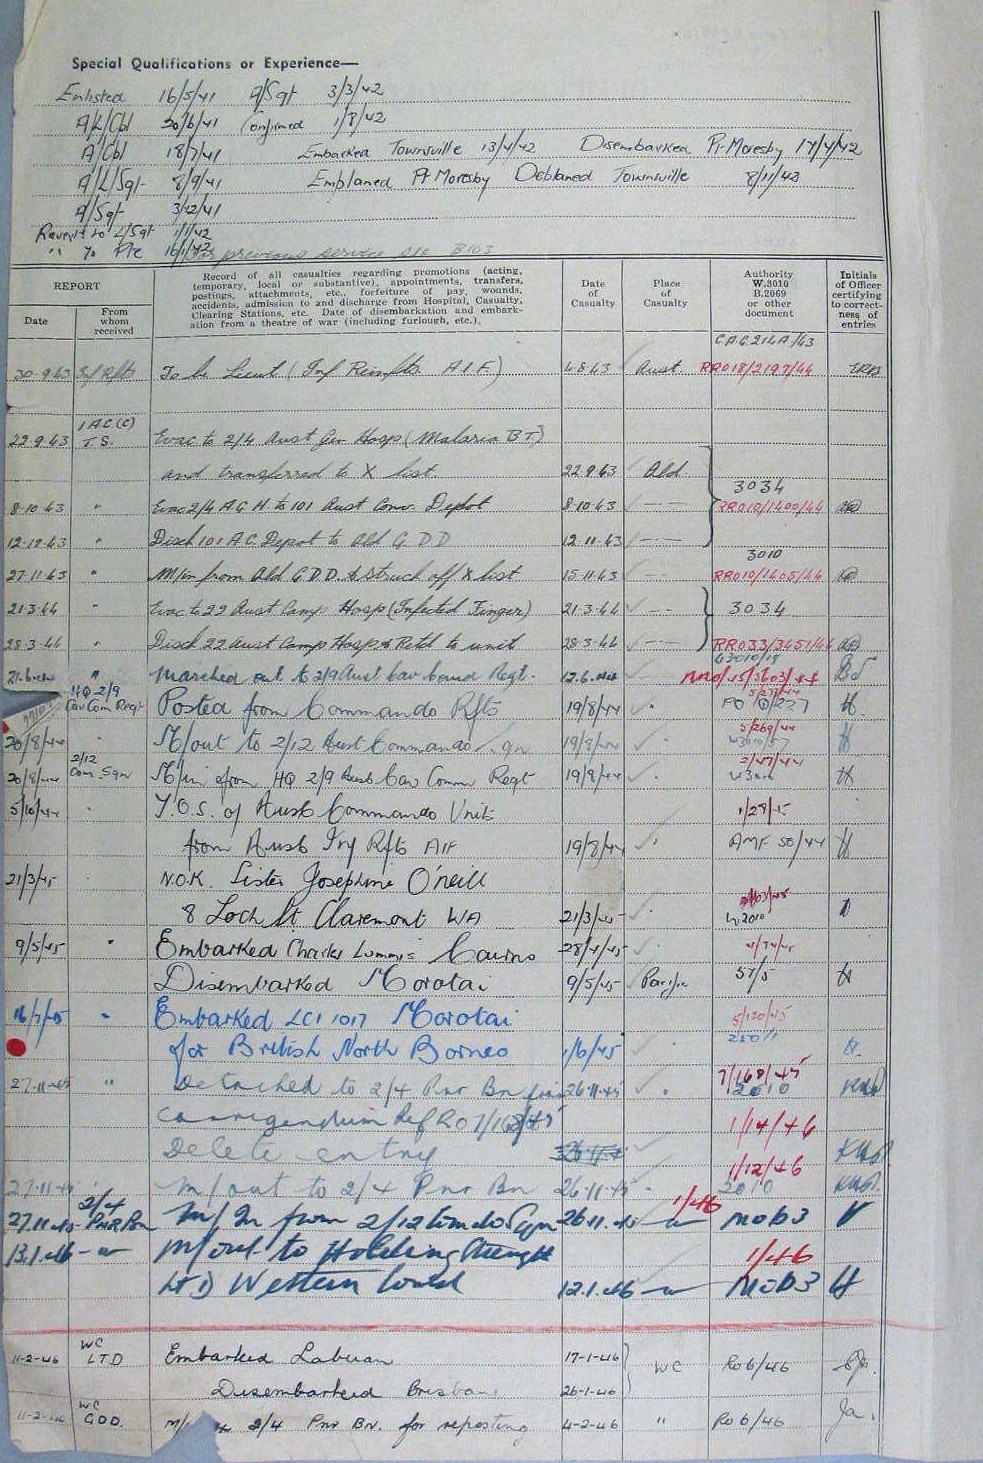 Special Qualifications or Experience—
Enlisted 16/5/41 A/Sgt 3/3/42
A/L/Cpl 20/6/41 Confirmed 1/8/42
A/Cpl 18/7/41 Embarked Townsville 13/4/42 Disembarked Pt Moresby 17/4/42
A/L/Sgt 8/9/41 Emplaned Pt Moresby Deplaned Townsville 8/11/42
A/Sgt 3/12/41
Revert to L/Sgt 1/1/42
" To Pte 16/1/42 For previous service see B103
REPORT
Date
From whom received
Record of all casualties regarding promotions (acting,
temporary, local or substantive), appointments, transfers,
postings, attachments, etc., forfeiture of pay, wounds,
accidents, admission to and discharge from Hospital, Casualty,
Clearing Stations, etc. Date of disembarkation and embark-
ation from a theatre of war (including furlough, etc.).
Date of Casualty
Place of Casualty
Authority W.3010 B.2069 or other document
Initials of Officer certifying to correct-ness of entries
C.A.G. 214A/43
30-9-43 Inf Rfts To be Lieut (Inf Reinfts A.I.F.) 4-8-43 Aust RR018/2197/44
1 A.C.(C)
22-9-43 T.S. Evac to 2/4 Aust Gen Hosp (Malaria BT)
and transferred to X list. 22.9.43 Qld
3034
8-10-43 " Evac 2/4 A.G.H. to 101 Aust Conv. Depot 8-10-43 RR010/1400/44
12-11-43 " Disch 101 A.C. Depot to Qld G.D.D 12-11-43
3010
27-11-43 " M/in from Qld G.D.D. & Struck off X list 15-11-43 RR010/1405/44
21-3-44 " Evac to 22 Aust Camp Hosp (Infected Finger) 21-3-44 3034
28-3-44 " Disch 22 Aust Camp Hosp & Retd to unit 28-3-44 RR033/3451/44
" Marched out to 2/9 Aust Cav Comd Regt. 12.6.44
HQ 2/9
Cav Com Regt Posted from Commando Rfts 19/8/44 PO 10/227
5/269/44
20/8/44 M/out to 2/12 Aust Commando Sqn 19/8/44
2/12
20/8/44 Com Sqn M/in from HQ 2/9 Aust Cav Comm Regt 19/8/44 W3010
5/10/44 T.O.S. of Aust Commando Units 1/29/45
from Aust Inf Rfts AIF 19/8/44 AMF 50/44
21/3/45 N.O.K. Sister Josephine O'neill
8 Loch St Claremont WA 21/3/45 W3010
9/5/45 " Embarked Charles Lummis Cairns 28/4/45
Disembarked Morotai 9/5/45 Pacific 57/5
16/7/45 " Embarked LCI 1017 Morotai 5/120/45
for British North Borneo 1/6/45
7/168/45
27-11-45 " Detached to 2/4 Pnr Bn from 26-11-45 2010
Corrigendum Ref R0 7/168/45 1/14/46
Delete entry
1/12/46
27-11-45 M/out to 2/4 Pnr Bn 26-11-45 2010
27.11.45 2/4 Pnr Bn M/In from 2/12 Comdo Sqn 26.11.45 1/46 MOB3
13.1.46 M/out to Holding Strength 1/46
LTD Western Comd 12.1.46 MOB3
WC
11-2-46 LTD Embarked Labuan 17-1-46 WC Ro 6/46
Disembarked Brisbane 26-1-46
WC
11-2-46 GDD. 2/4 Pnr Bn. for reposting 4-2-46 " Ro 6/46